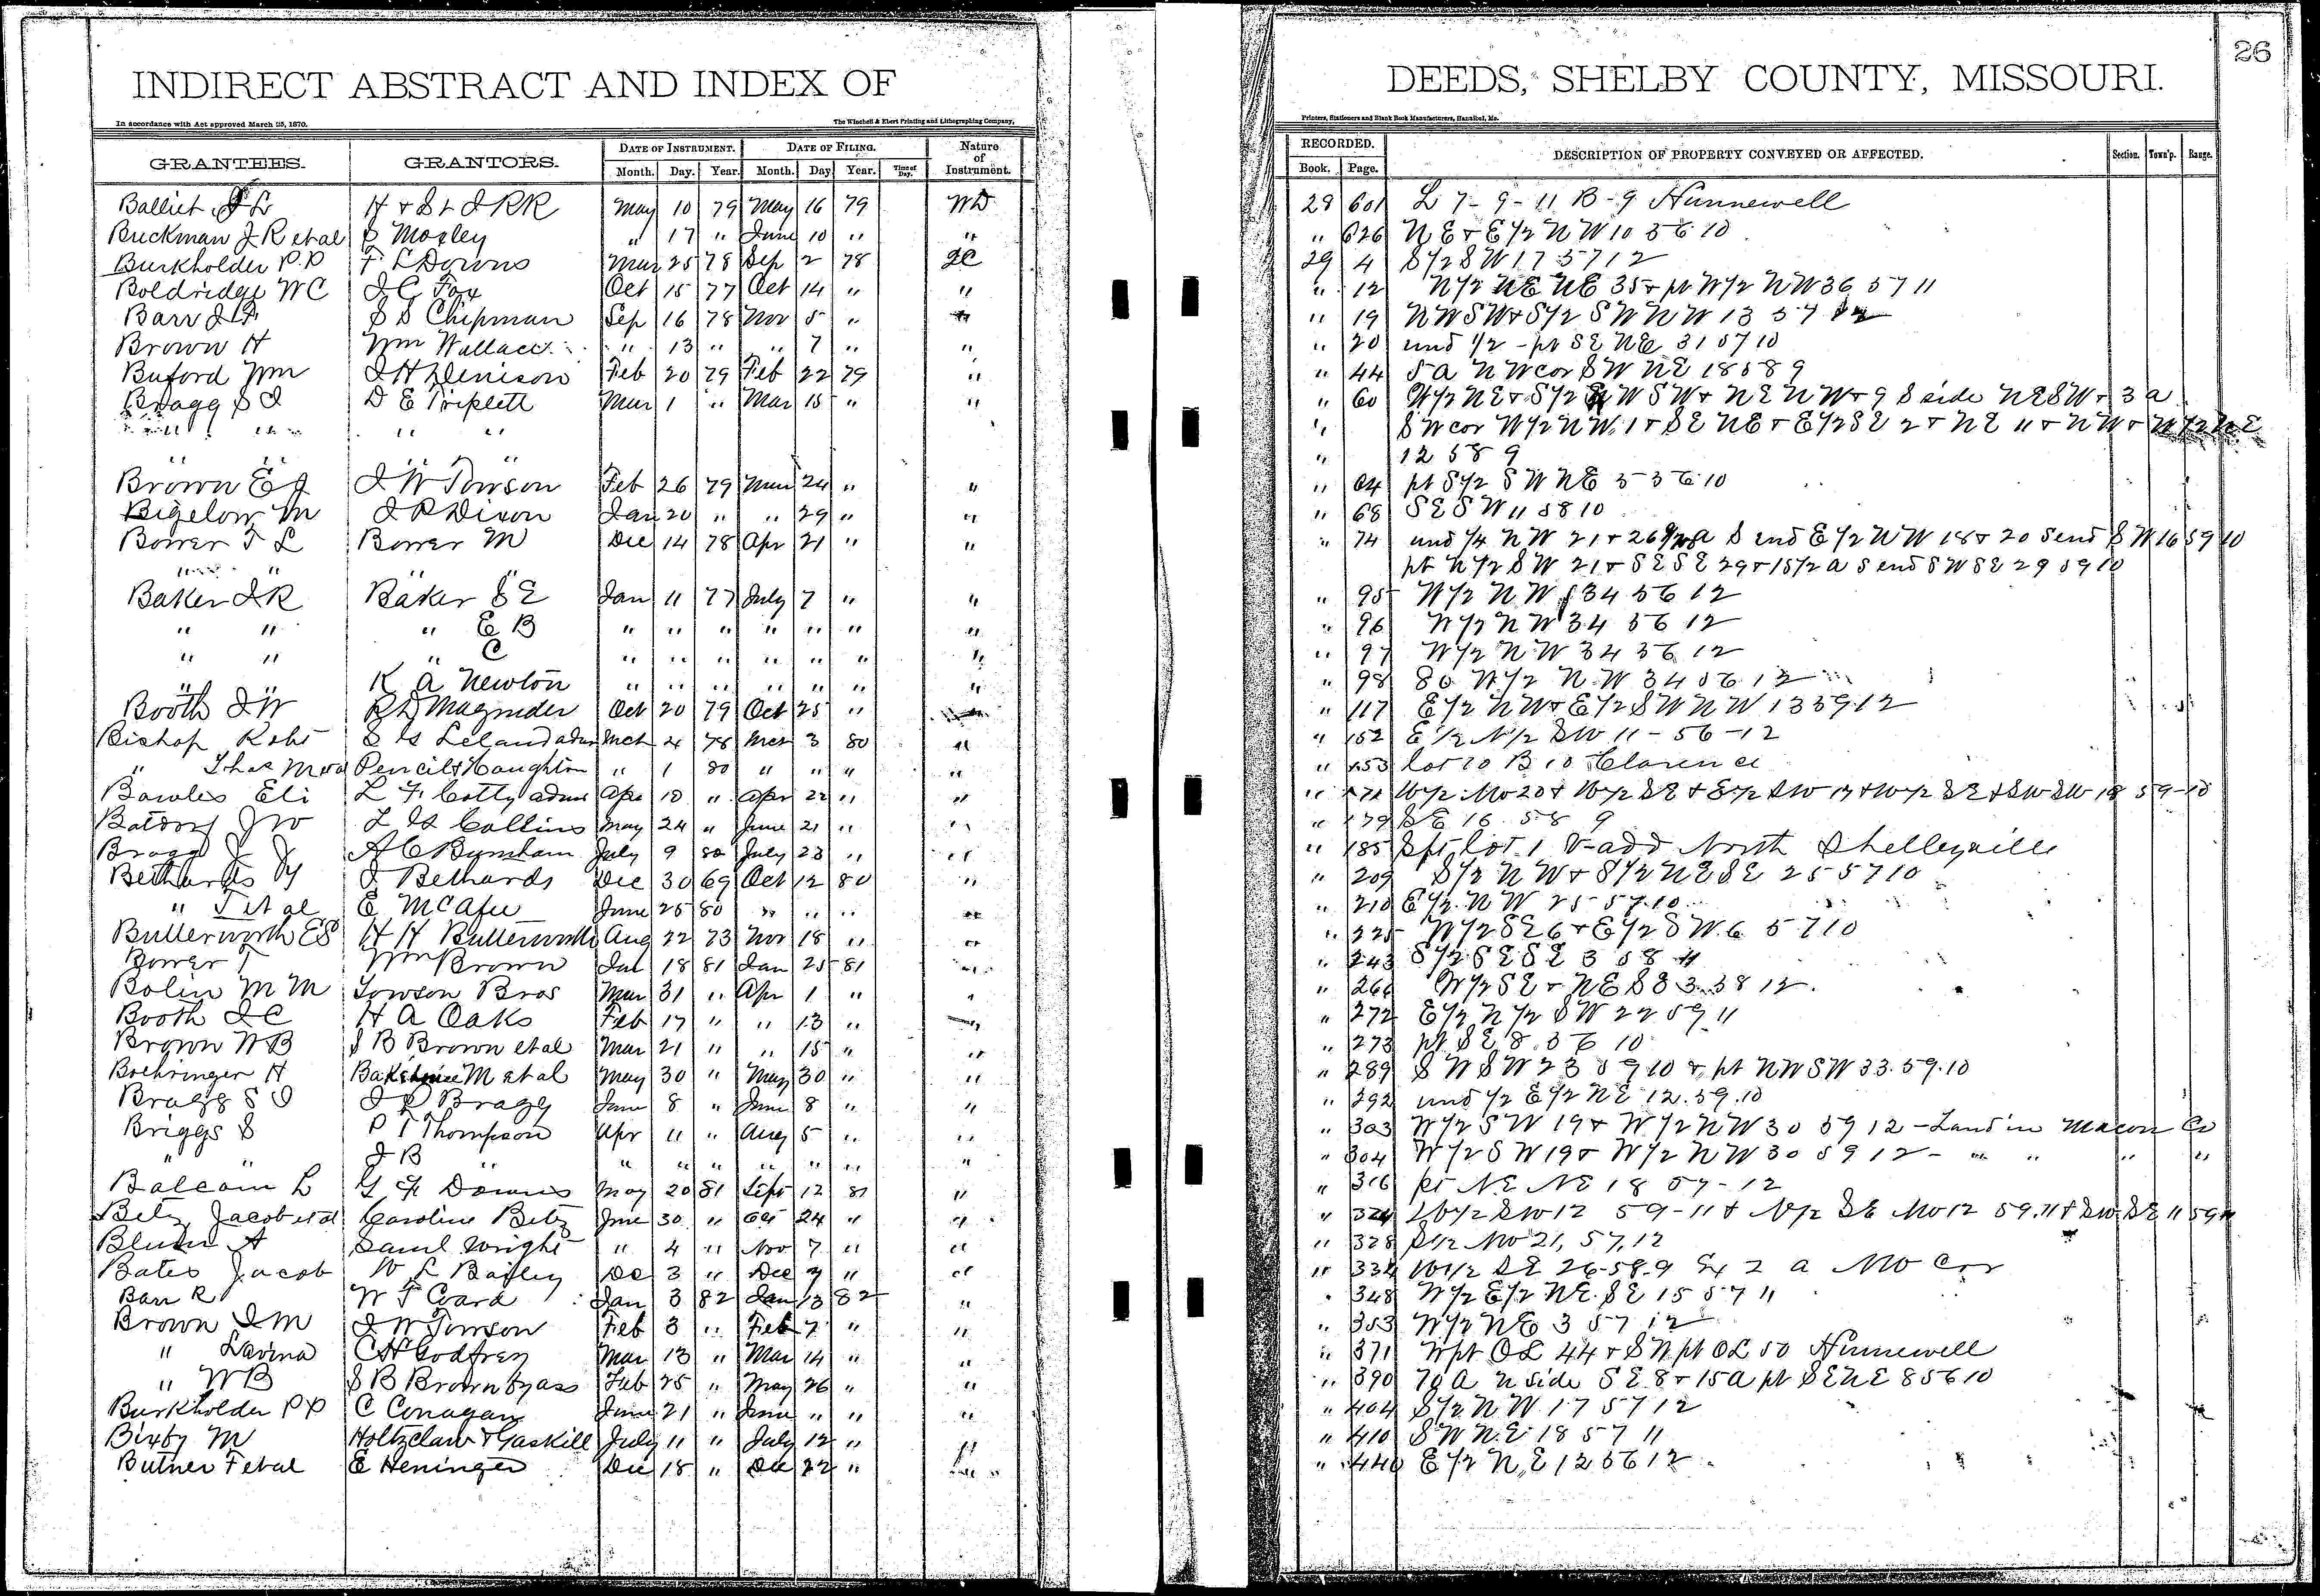 INDIRECT ABSTRACT AND INDEX OF DEEDS, SHELBY COUNTY, MISSOURI.
26
In accordance with Act approved March 25, 1870. The Winchell & Ebert Printing and Lithographing Company, Printers, Stationers and Blank Book Manufacturers, Hannibal, Mo.
GRANTEES. GRANTORS. DATE OF INSTRUMENT. DATE OF FILING. Nature of Instrument. RECORDED. DESCRIPTION OF PROPERTY CONVEYED OR AFFECTED. Section. Town'p. Range.
Month. Day. Year. Month. Day. Year. Time of Day. Book. Page.
Balliet J L H & St J RR May 10 79 May 16 79 WD 28 601 L 7-9-11 B-9 Hunnewell
Buckman J R et al S Mosley " 17 " June 10 " " " 626 NE & E 1/2 NW 10 56 10
Burkholder P P F L Downs Mar 25 78 Sep 2 78 QC 29 4 S 1/2 SW 17 57 12
Boldridge W C J C Fox Oct 15 77 Oct 14 " " " 12 N 1/2 NE NE 35 & pt N 1/2 NW 36 57 11
Barr S S Chipman Sep 16 78 Nov 5 " " 19 NW SW & S 1/2 SW NW 13 57
Brown H Wm Wallace " 13 " " 7 " " " 20 und 1/2 - pt SE NE 31 57 10
Buford Wm J H Denison Feb 20 79 Feb 22 79 " " 44 5 a NW cor SW NE 18 58 9
Bragg S J D E Triplett Mar 1 " Mar 15 " " " 60 W 1/2 NE & S 1/2 W SW & NE NW & 9 S side NE SW & 3 a
" " " " " SW cor W 1/2 NW 1 & SE NE & E 1/2 SE 2 & NE 11 & NW & W 1/2 NE
" " " " " 12 58 9
Brown E J J W Towson Feb 26 79 Mar 24 " " " 64 pt S 1/2 SW NE 5 56 10
Bigelow M J R Dixon Jan 20 " " 29 " " " 68 SE SW 11 58 10
Bower T L Bower M Dec 14 78 Apr 21 " " " 74 und 1/4 NW 21 & 26 a S end E 1/2 NW 18 & 20 S end SW 16 59 10
" " " pt N 1/2 SW 21 & SE SE 29 & 15 1/2 a S end SW SE 29 59 10
Baker J R Baker S E Jan 11 77 July 7 " " " 95 W 1/2 NW 34 56 12
" " " E B " " " " " " " " 96 W 1/2 NW 34 56 12
" " " C " " " " " " " " 97 W 1/2 NW 34 56 12
" " K A Newton " " " " " " " " 98 80 W 1/2 NW 34 56 12
Booth J W R D Magruder Oct 20 79 Oct 25 " " 117 E 1/2 NW & E 1/2 SW NW 13 59 12
Bishop Robt Leland admr Mch 4 78 Mch 3 80 " " 152 E 1/2 N 1/2 SW 11-56-12
" Pencil & Houghton " 1 80 " " " " " 153 Lot 10 B 10 Clarence
Bowles Eli L F Cotty admr Apr 10 " Apr 22 " " " W 1/2 NW 20 & W 1/2 SE & E 1/2 SW 17 & W 1/2 SE & SW SW 18 59-10
Batdorf J W Collins May 24 " June 21 " " " 179 SE 16 58 9
Bragg J J A C Bynham July 9 80 July 23 " " " 185 Spt lot 1 V-add North Shelbyville
Bethards Wy J Bethards Dec 30 69 Oct 12 80 " " 209 S 1/2 NW & S 1/2 NE SE 25 57 10
" T et al E McAfee June 25 80 " " " " " 210 E 1/2 NW 25-57.10
Butterworth ES H H Butterworth Aug 22 73 Nov 18 " " " 225 W 1/2 SE 6 & E 1/2 SW 6 57 10
Bower T Wm Brown Jan 18 81 Jan 25 81 " " 243 S 1/2 SE SE 3 58 11
Bolin M M Towson Bros Mar 31 " Apr 1 " " " 266 W 1/2 SE & NE SE 3 58 12
Booth J C H A Oaks Feb 17 " " 13 " " 272 E 1/2 N 1/2 SW 22 59 11
Brown W B S B Brown et al Mar 21 " " 15 " " " 273 pt SE 8 56 10
Boehringer H M et al May 30 " May 30 " " " 289 SW SW 23 59 10 & pt NW SW 33.59.10
Bragg S J J R Bragg June 8 " June 8 " " " 292 und 1/2 E 1/2 NE 12.59.10
Briggs S P T Thompson Apr 11 " Aug 5 " " " 303 W 1/2 SW 19 & W 1/2 NW 30 59 12 - Land in Macon Co
" " J B " " " " " " " " " 304 W 1/2 SW 19 & W 1/2 NW 30 59 12 - " " " "
Balcom L G F Downs May 20 81 Sept 12 81 " " 316 pt NE NE 18 57-12
Betz Jacob et al Caroline Betz June 30 " Oct 24 " " " 324 W 1/2 SW 12 59-11 & N 1/2 SE NW 12 59.11 & SW SE 11 59 11
Blum A Saml Wright " 4 " Nov 7 " " " 328 S 1/2 NW 21, 57, 12
Bates Jacob W L Bailey Dec 3 " Dec 7 " " " 334 W 1/2 SE 26-58-9 Ex 2 a NW Cor
Barr R W T Coard Jan 3 82 Jan 13 82 " " 348 W 1/2 E 1/2 NE SE 15 57 11
Brown J M J W Towson Feb 3 " Feb 7 " " " 353 W 1/2 NE 3 57 12
" Lavina C H Godfrey Mar 13 " Mar 14 " " " 371 N pt OL 44 & SW pt OL 50 Hunnewell
" W B S B Brown by ass Feb 25 " May 26 " " " 390 70 a N side SE 8 & 15 a pt SE NE 8 56 10
Burkholder P P C Conagan June 21 " June " " " " 404 S 1/2 NW 17 57 12
Bixby M Holtzclaw & Gaskill July 11 " July 12 " " " 410 SW NE 18 57 11
Butner F et al E Heninger Dec 18 " Dec 22 " " " 440 E 1/2 NE 12 56 12